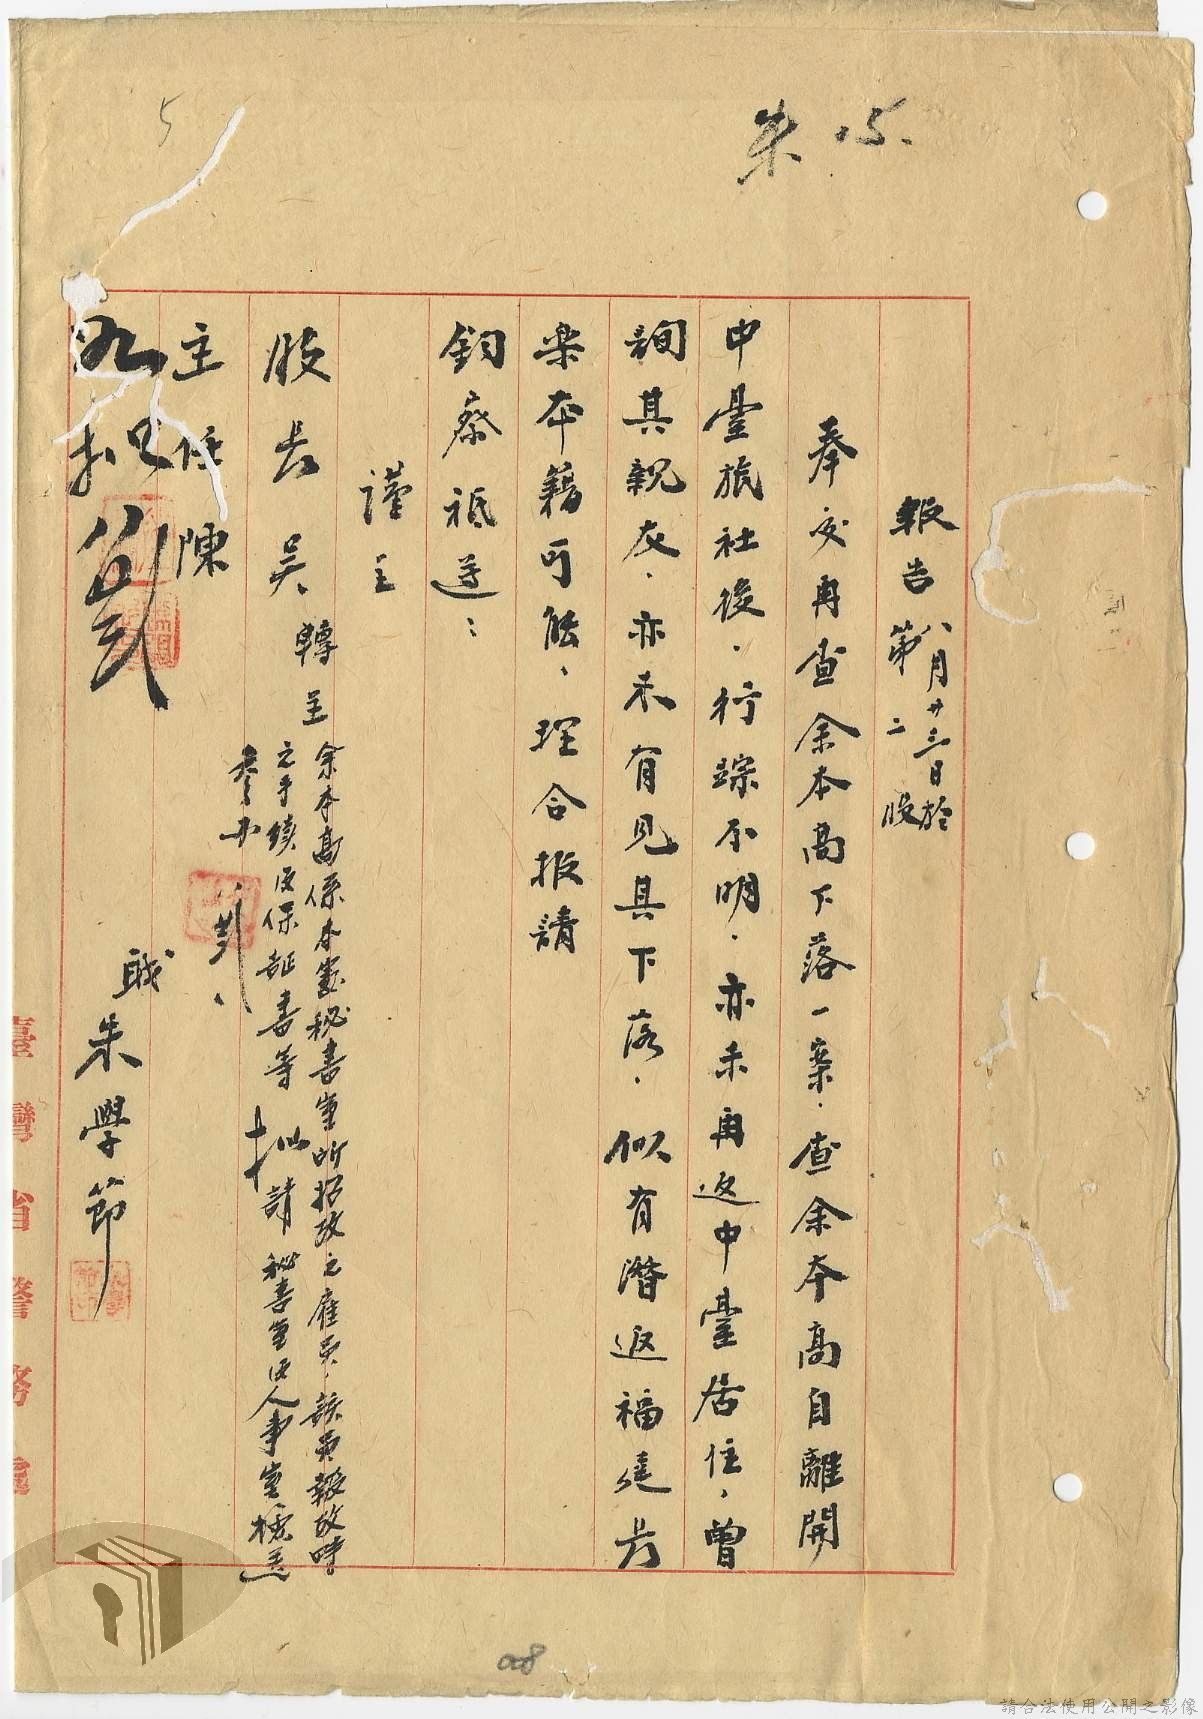 朱 15.
5
報告 八月廿三日於
第二股
奉交再查余本高下落一案．查余本高自離開
中臺旅社後．行踪不明．亦未再返中臺居住，曾
詢其親友．亦未有見其下落．似有潛返福建長
樂本籍可能、理合报請
鈞察祗遵：
謹呈
股長 吳 轉呈
主任 陳
職 朱學節
余本高係本處秘書室所招攷之雇員，該員報攷時
之手續及保証書等 拟請秘書室及人事室檢送
參办
如拟
臺灣省警務處
08
請合法使用公開之影像